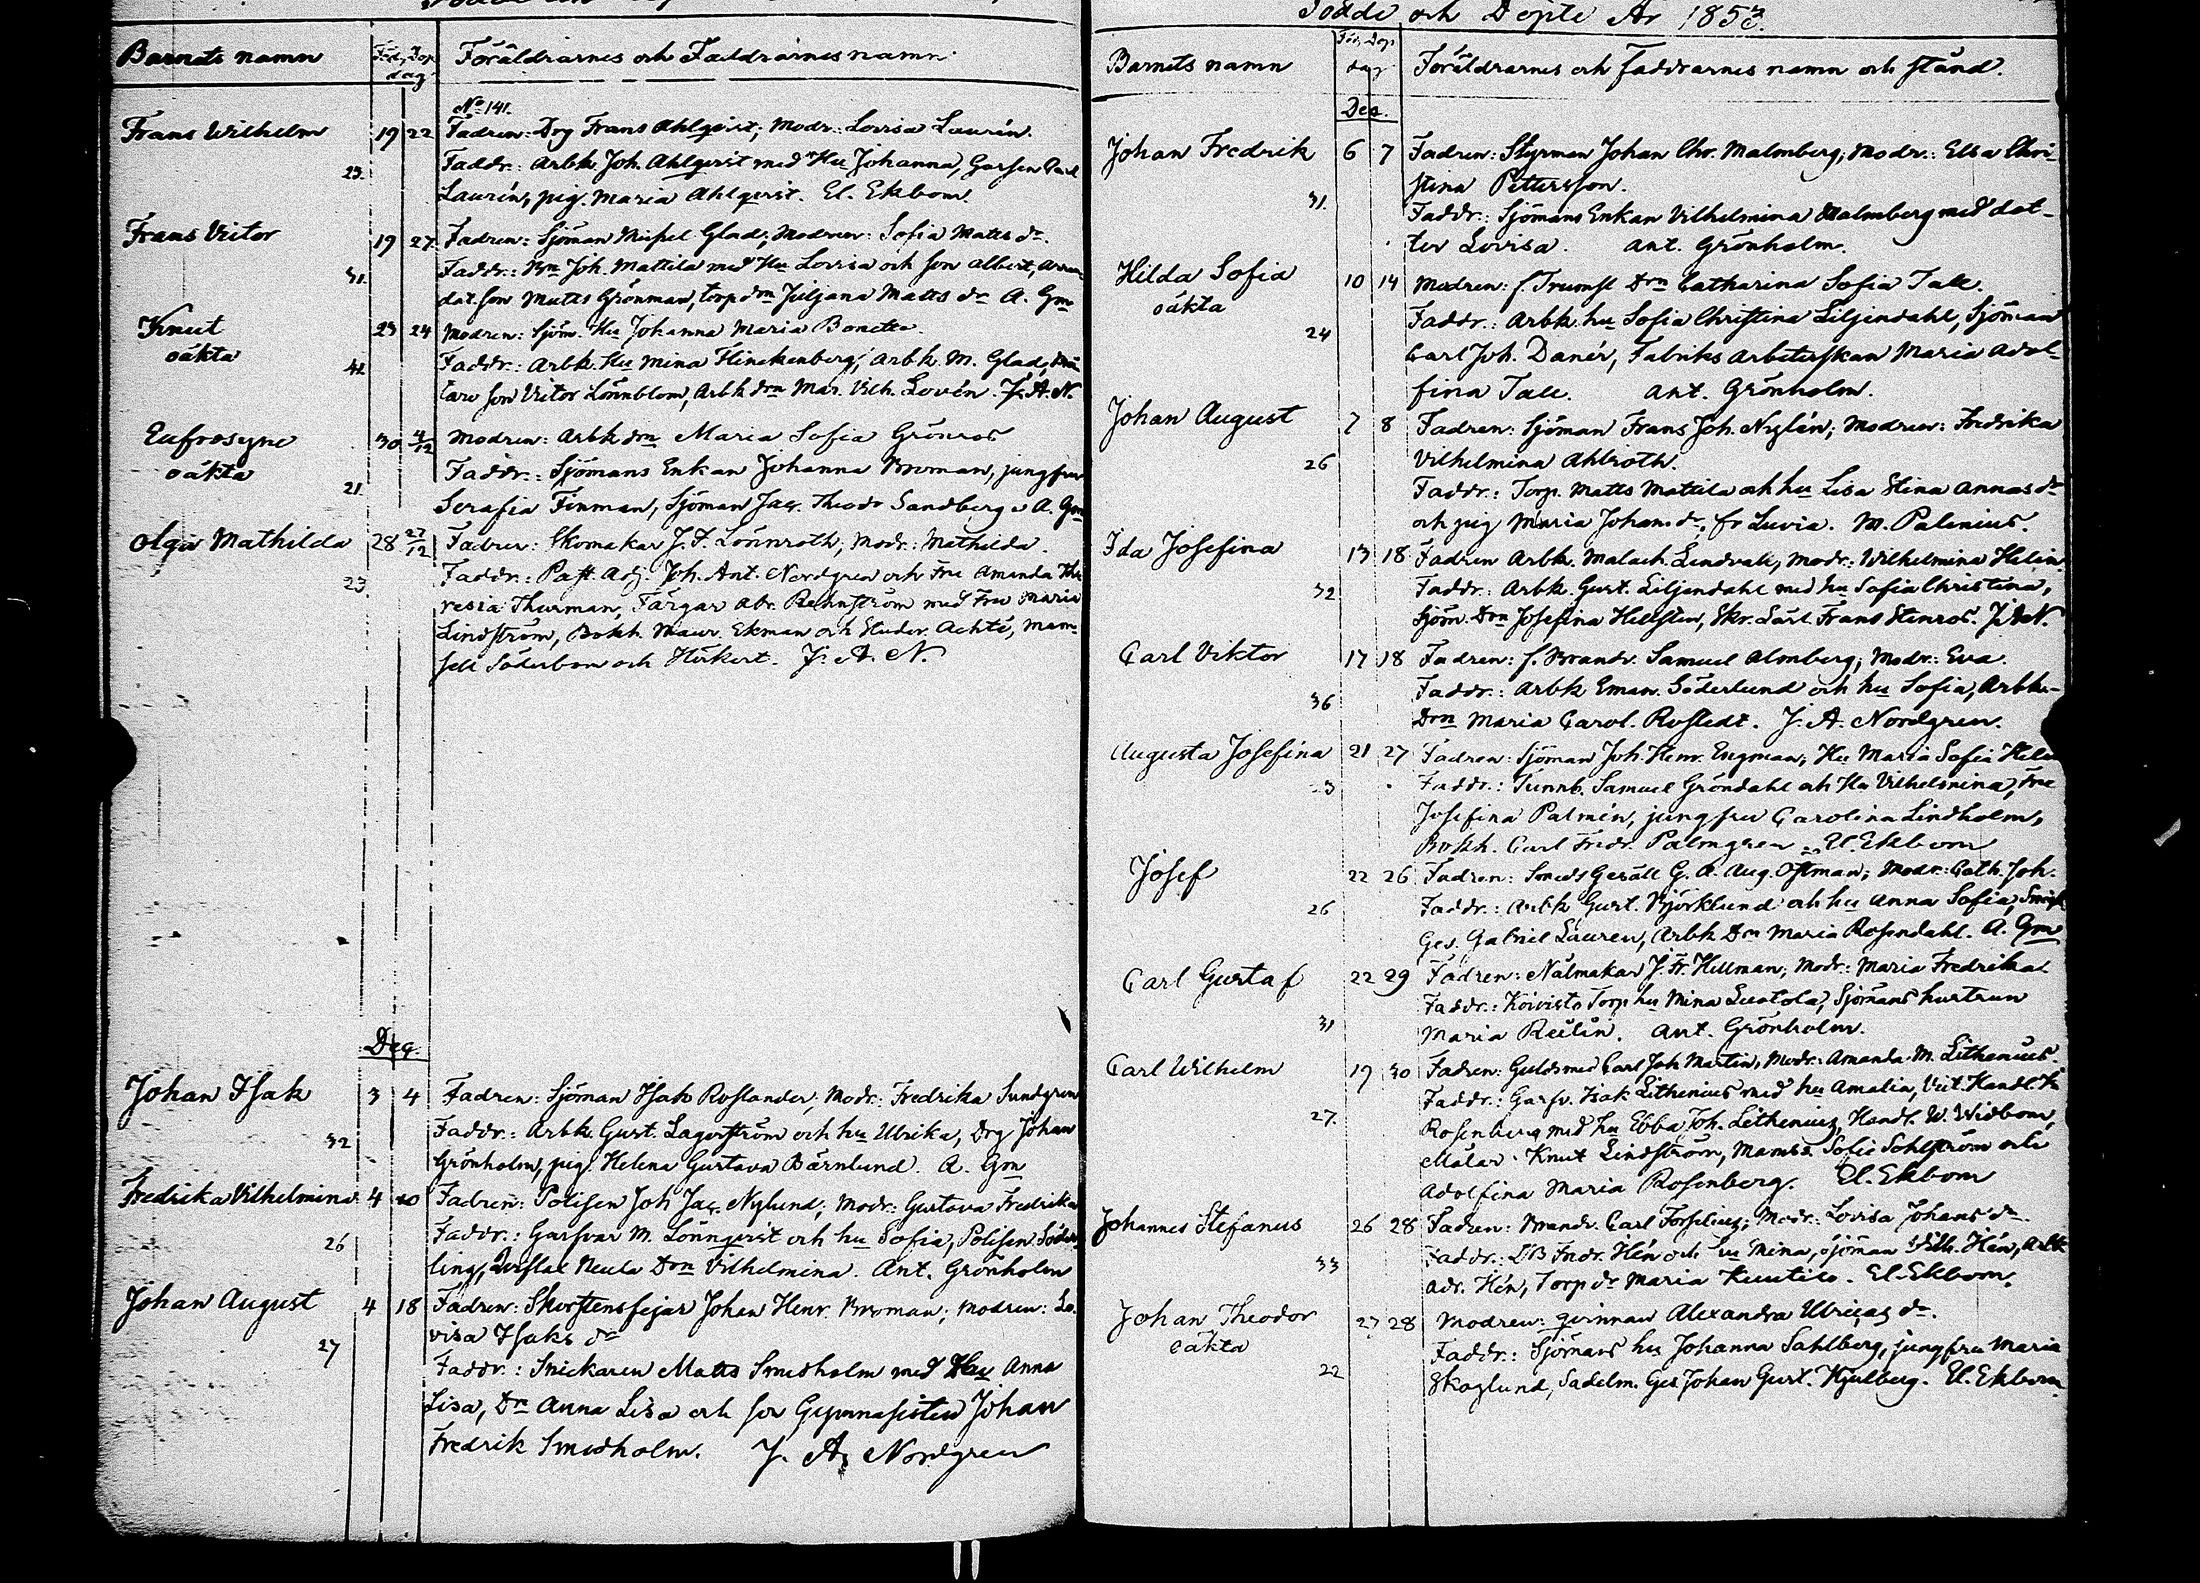 Barnets namn
Föd. Döp.
dag
Föräldrarnes och Faddrarnes namn
No 141.
Frans Wilhelm 19 22 Fadren: Drg Frans Ahlqvist; Modr: Lovisa Laurén.
Faddr: Arbk Joh. Ahlqvist med Hu Johanna, Garfven
23.
Laurén, pig. Maria Ahlqvist. El. Ekbom.
Frans Victor 19 27 Fadren: Sjöman Glad; Modren: Sofia Matts dr.
Faddr.: Joh. Mattila med Hu Lovisa och son Albert,
31.
Matts Grönman, torp drn Juljana Matts dr A. Gm
Knut 23 24 Modren: Sjöm. Hu Johanna Maria
oäkta
Faddr.: Arbk. Hu Mina Flinckenberg, Arbk. M. Glad,
42
son Victor Lönnblom, Arbk drn Mar. Vilh. Lovén. J. A. N.
Eufrosyne 30 4/12 Modren: Arbk drn Maria Sofia Grönros
oäkta
Faddr.: Sjömans Enkan Johanna Broman, jungfru
21.
Serafia Finman, Sjöman Jac. Theodr Sandberg A. Gm
Olga Mathilda 28 27/12 Fadren: Skomakar J. F. Lönnroth; Modr.: Mathilda.
Faddr.: Past. Adj. Joh. Ant. Nordgren och Fru Amanda The
23.
resia Thurman, Färgar Abr. Rehnström med Fru Maria
Lindström, Bokh. Maur. Ekman och Studer. Achté, Mam-
sell Söderbom och Hirkert. J. A. N.
Dec.
Johan Isak 3 4 Fadren: Sjöman Isak Roslander; Modr: Fredrika Sundgren
32
Faddr.: Arbk Gust. Lagerström och hu Ulrika, Drg Johan
Grönholm, pig. Helena Gustava Bärnlund. A. Gm
Fredrika Vilhelmina 4 10 Fadren: Polisen Joh Jac. Nylund; Modr: Gustava Fredrika
26
Faddr.: Garfvar M. Lönnqvist och hu Sofia, Polisen Söder
ling, Neula Drn Vilhelmina. Ant. Grönholm
Johan August 4 18 Fadren: Skorstensfejar Johan Henr Broman; Modren: Lo-
visa Isaks dr
27
Faddr.: Snickaren Matts Smedholm med Hu Anna
Lisa, Dr Anna Lisa och son Gymnasisten Johan
Fredrik Smedholm. J. A. Nordgren
Födde och Döpte År 1853.
Barnets namn
Föd. Döp.
dag
Föräldrarnes och faddrarnes namn och stånd.
Dec.
Johan Fredrik 6 7 Fadren: Styrman Johan Chr. Malmberg; Modr.: Elsa Chri-
stina Pettersson.
31.
Faddr.: Sjömans Enkan Vilhelmina Malmberg med dot-
ter Lovisa. Ant. Grönholm.
Hilda Sofia 10 14 Modren: f. Trumsl Drn Catharina Sofia Tall.
oäkta
Faddr.: Arbk. hu Sofia Christina Liljendahl, Sjöman
24
Carl Joh. Danér, Fabriks arbeterskan Maria Adol-
fina Tall. Ant. Grönholm.
Johan August 7 8 Fadren: Sjöman Frans Joh. Nylén; Modren: Fredrika
26
Vilhelmina Ahlroth.
Faddr.: Torp. Matts Mattila och hu Lisa Stina Annas dr
och pig Maria Johans dr, fr Luvia. M. Palenius.
Ida Josefina 13 18 Fadren Arbk. Malach. Lindvall, Modr: Wilhelmina Helin
Faddr.: Arbk. Gust. Liljendahl med hu Sofia Christina,
32
Sjöm. Drn Josefina Hellsten, Skr. Lärl. Frans Stenros. J. A. N.
Carl Viktor 17 18 Fadren: f. Brandv. Samuel Almberg; Modr: Eva.
Faddr.: Arbk Eman. Söderlund och hu Sofia, Arbk-
36
Drn Maria Carol. Rostedt. J. A. Nordgren.
Augusta Josefina 21 27 Fadren: Sjöman Joh. Henr. Engman; Hu Maria Sofia
23
Faddr.: Tunnb. Samuel Gröndahl och Hu Vilhelmina, Fru
Josefina Palmén, jungfru Carolina Lindholm,
Bokh. Carl Fredr. Palmgren. El. Ekbom
Josef 22 26 Fadren: Smeds Gesäll G. A. Aug. Östman; Modr: Cath. Joh.
26
Faddr.: Arbk Gust. Björklund och hu Anna Sofia,
Ges. Gabriel Lauren, Arbk Drn Maria Rosendahl. A. Gm
Carl Gustaf 22 29 Fadren: Nålmakar J. Fr. Hellman; Modr: Maria Fredrika
Faddr.: Koivisto Torp hu Mina Luotola, Sjömans hustrun
31
Maria Ant. Grönholm.
Carl Wilhelm 19 30 Fadren: Guldsmed Carl Joh Martin, Modr: Amanda M. Lithenius.
Faddr: Garfv. Isak Lithenius med hu Amalia, Vict. Handl.
27.
Rosenberg med hu Ebba, Joh. Lithenius, Handl. W. Widbom,
Målar Knut Lindström, Mamss. Sofie Sohlström och
Adolfina Maria Rosenberg. El. Ekbom
Johannes Stefanus 26 28 Fadren: Brandv. Carl Forselius; Modr: Lovisa Johans dr.
33
Faddr: Fredr. Hén och hu Mina, Sjöman Vilh. Hén, Arbk
Adr. Hén, Torp dr Maria El. Ekbom.
Johan Theodor 27 28 Modren: qvinnan Alexandra Ulricas dr.
oäkta
Faddr.: Sjömans hu Johanna Sahlberg, jungfru Maria
22
Skoglund, Sadelm. Ges Johan Gust. Hjulberg. El. Ekbom.